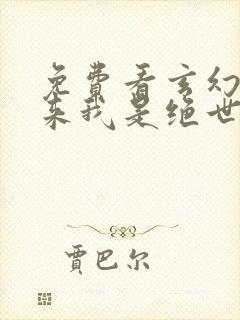 免费看玄幻
来我是绝世
贾巴尔